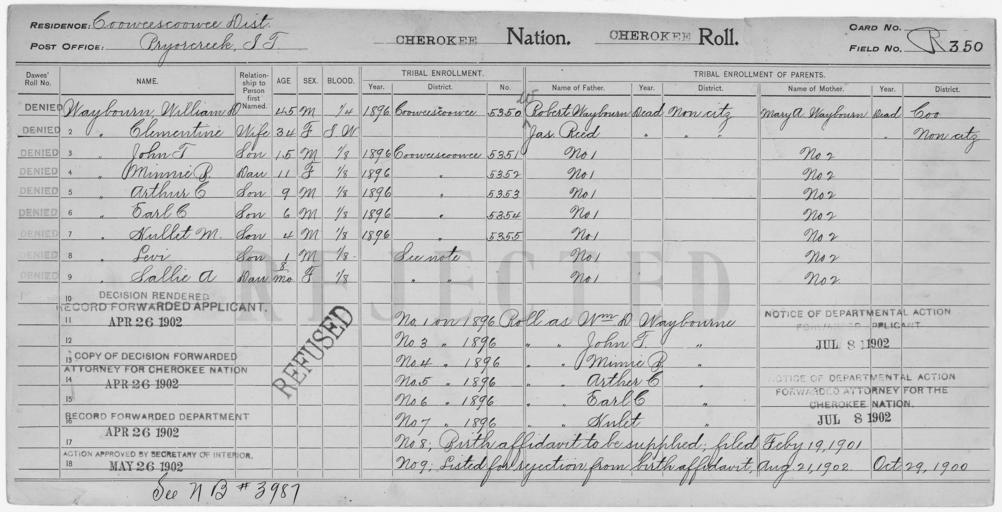 RESIDENCE: Coowescoowee Dist.
POST OFFICE: Pryorcreek, I T.
CHEROKEE Nation. CHEROKEE Roll.
CARD NO.
FIELD NO. R 350
Dawes' Roll No. NAME. Relationship to Person first Named. AGE SEX. BLOOD. TRIBAL ENROLLMENT. Year. District. No. TRIBAL ENROLLMENT OF PARENTS. Name of Father. Year. District. Name of Mother. Year. District.
DENIED Waybourn, William D 45 M 1/4 1896 Coowescoowee 5350 Robert Waybourn Dead Non citz Mary A Waybourn Dead Coo
DENIED 2 " Clementine Wife 34 F I.W. Jas. Reed " " " Non citz
DENIED 3 " John T Son 15 M 1/8 1896 Coowescoowee 5351 No 1 No 2
DENIED 4 " Minnie P. Dau 11 F 1/8 1896 " 5352 No 1 No 2
DENIED 5 " Arthur C Son 9 M 1/8 1896 " 5353 No 1 No 2
DENIED 6 " Earl C Son 6 M 1/8 1896 " 5354 No 1 No 2
DENIED 7 " Hullet M. Son 4 M 1/8 1896 " 5355 No 1 No 2
DENIED 8 " Levi Son 1 M 1/8 See note No 1 No 2
DENIED 9 " Sallie A Dau 8 mo F 1/8 " " No 1 No 2
REJECTED
REFUSED
10 DECISION RENDERED
RECORD FORWARDED APPLICANT.
11 APR 26 1902
12
13 COPY OF DECISION FORWARDED
ATTORNEY FOR CHEROKEE NATION
14 APR 26 1902
15
16 RECORD FORWARDED DEPARTMENT
APR 26 1902
17
ACTION APPROVED BY SECRETARY OF INTERIOR.
18 MAY 26 1902
No 1 on 1896 Roll as Wm D Waybourne
No 3 " 1896 " " John T. "
No 4 " 1896 " " Minnie P. "
No 5 " 1896 " " Arther C "
No 6 " 1896 " " Earl C "
No 7 " 1896 " " Hulet "
No 8; Birth affidavit to be supplied; filed Feby 19, 1901
No 9; Listed for rejection from birth affidavit, Aug. 21, 1902 Oct 29, 1900
NOTICE OF DEPARTMENTAL ACTION
FORWARDED APPLICANT
JUL 8 1902
NOTICE OF DEPARTMENTAL ACTION
FORWARDED ATTORNEY FOR THE
CHEROKEE NATION.
JUL 8 1902
See N B # 3987